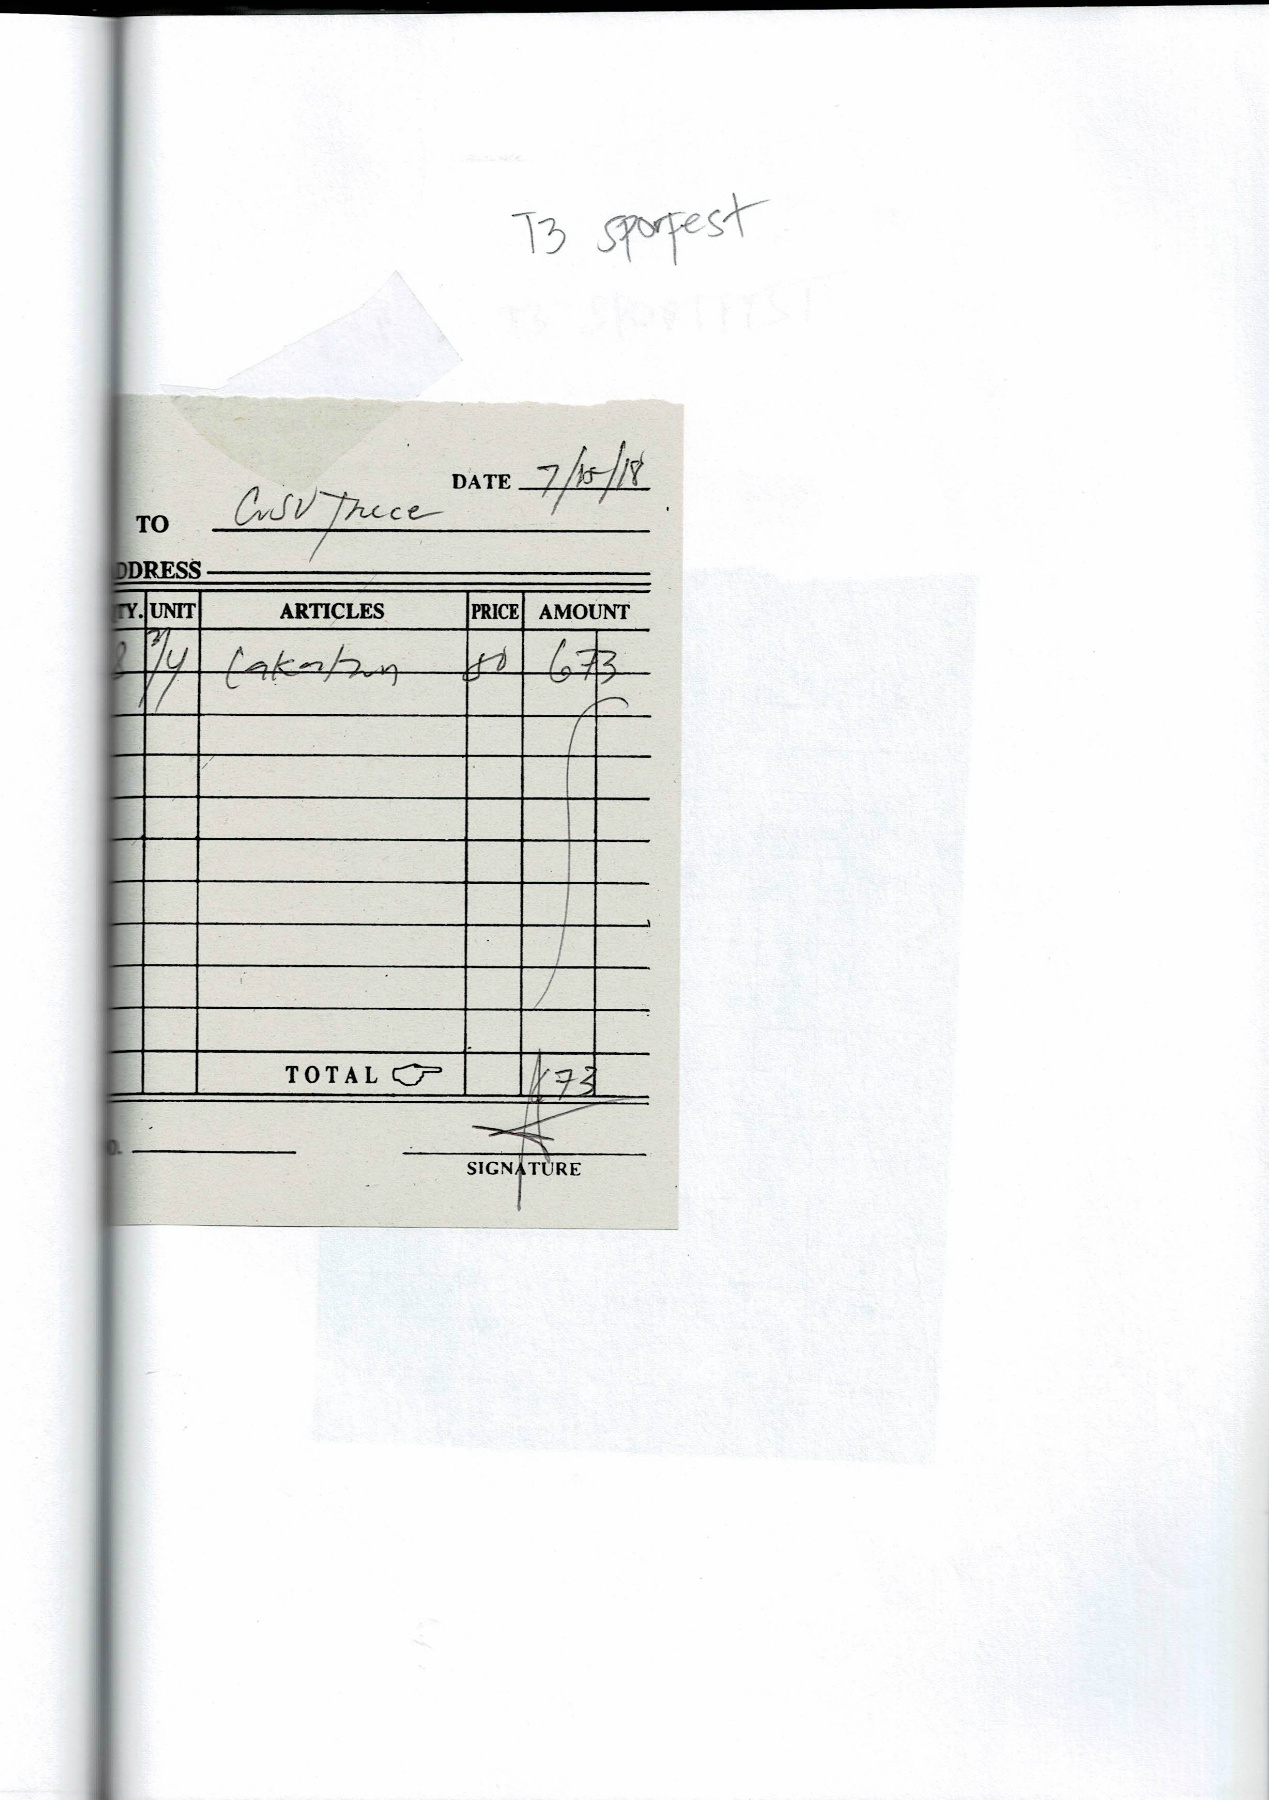 T3 sporfest
DATE 7/15/18
TO CvSU Trece
DDRESS
TY. UNIT ARTICLES PRICE AMOUNT
8 3/4 80 673
TOTAL 673
O.
SIGNATURE